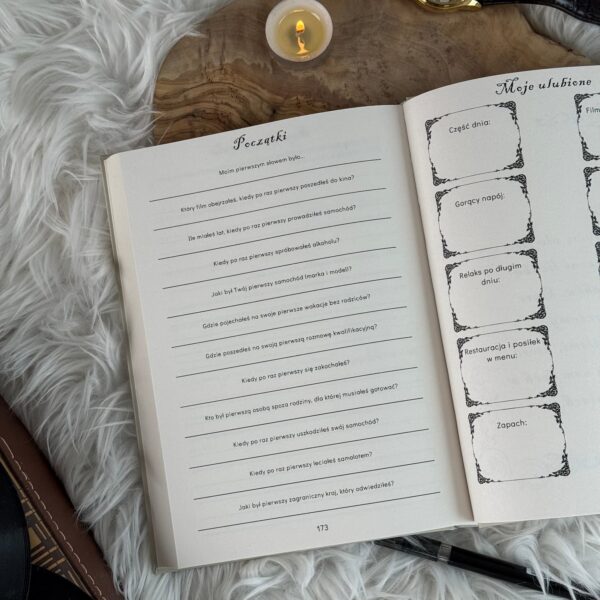 Początki
Moim pierwszym słowem było...
Który film obejrzałeś, kiedy po raz pierwszy poszedłeś do kina?
Ile miałeś lat, kiedy po raz pierwszy prowadziłeś samochód?
Kiedy po raz pierwszy spróbowałeś alkoholu?
Jaki był Twój pierwszy samochód (marka i model)?
Gdzie pojechałeś na swoje pierwsze wakacje bez rodziców?
Gdzie poszedłeś na swoją pierwszą rozmowę kwalifikacyjną?
Kiedy po raz pierwszy się zakochałeś?
Kto był pierwszą osobą spoza rodziny, dla której musiałeś gotować?
Kiedy po raz pierwszy uszkodziłeś swój samochód?
Kiedy po raz pierwszy leciałeś samolotem?
Jaki był pierwszy zagraniczny kraj, który odwiedziłeś?
173
Moje ulubione
Część dnia:
Film
Gorący napój:
Relaks po długim
dniu:
Restauracja i posiłek
w menu:
Zapach: